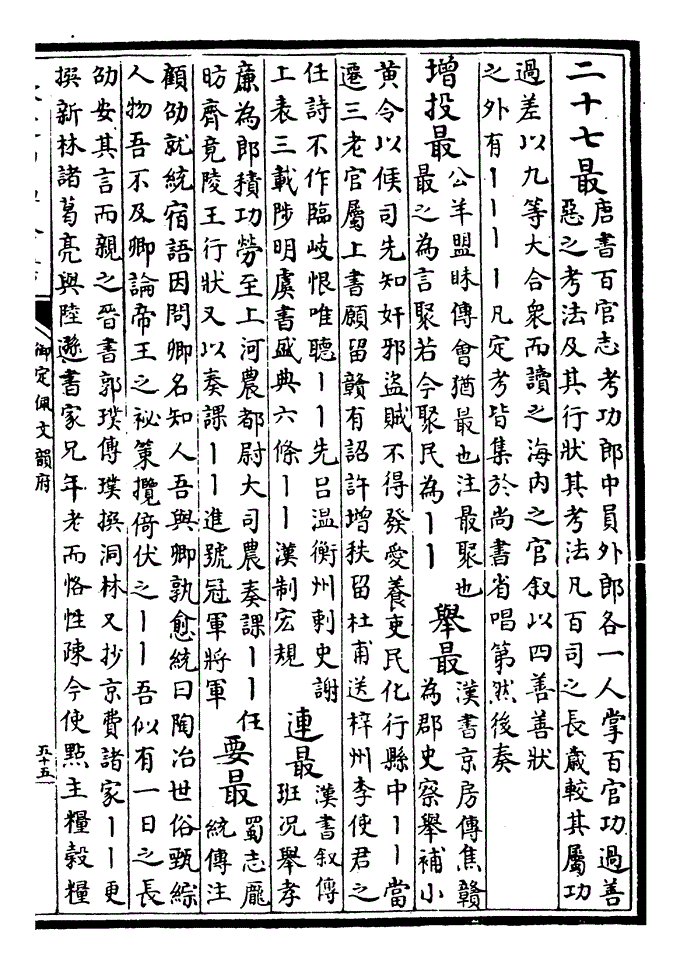 二十七最
唐書百官志考功郎中員外郎各一人掌百官功過善
惡之考法及其行狀其考法凡百司之長歲較其屬功
過差以九等大合衆而讀之海内之官叙以四善善狀
之外有丨丨丨丨凡定考皆集於尚書省唱第然後奏
增投最
公羊盟昧傳會猶最也注最聚也
最之為言聚若今聚民為丨丨
舉最
漢書京房傳焦贛
為郡史察舉補小
黄令以候司先知奸邪盜賊不得發愛養吏民化行縣中丨丨當
遷三老官屬上書願留贛有詔許增秩留杜甫送梓州李使君之
任詩不作臨岐恨唯聽丨丨先吕溫衡州刺史謝
上表三載陟明虞書盛典六條丨丨漢制宏規
連最
漢書叙傳
班况舉孝
亷為郎積功勞至上河農都尉大司農奏課丨丨任
昉齊竟陵王行狀又以奏課丨丨進號冠軍將軍
要最
蜀志龎
統傳注
顧劭就統宿語因問卿名知人吾與卿孰愈統曰陶冶世俗甄綜
人物吾不及卿論帝王之祕策攬倚伏之丨丨吾似有一日之長
劭安其言而親之晉書郭璞傳璞撰洞林又抄京費諸家丨丨更
撰新林諸葛亮與陸遜書家兄年老而恪性疎今使㸃主糧穀糧
御定佩文韻府
五十五